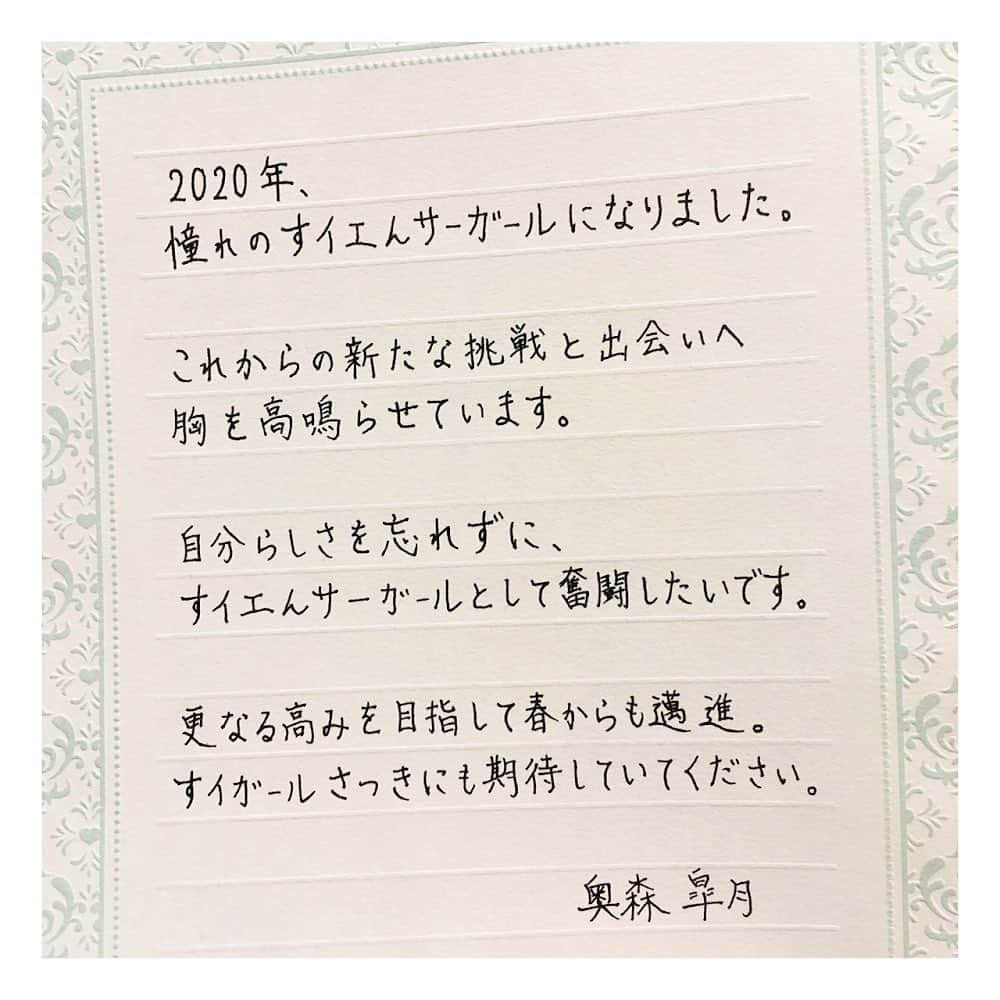 2020年、
憧れのすイエんサーガールになりました。
これからの新たな挑戦と出会いへ
胸を高鳴らせています。
自分らしさを忘れずに、
すイエんサーガールとして奮闘したいです。
更なる高みを目指して春からも邁進。
すイガールさつきにも期待していてください。
奥森 皐月